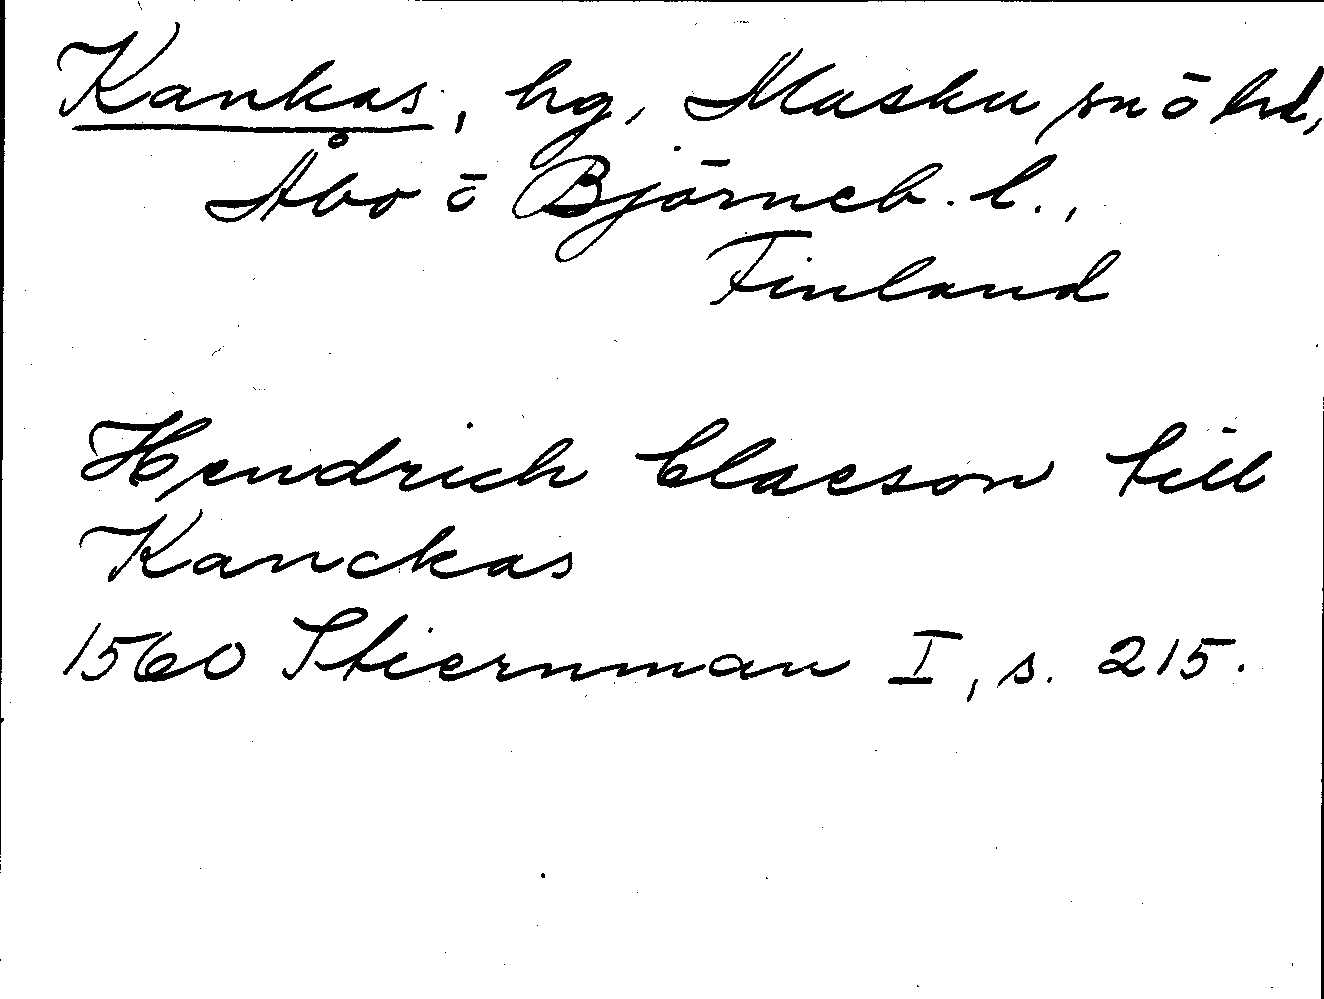 Kankas, hg, Masku sn ö hd,
Åbo ö Björneb. l.,
Finland
Hendrich Claeson till
Kanckas
1560 Stiernman I, s. 215.